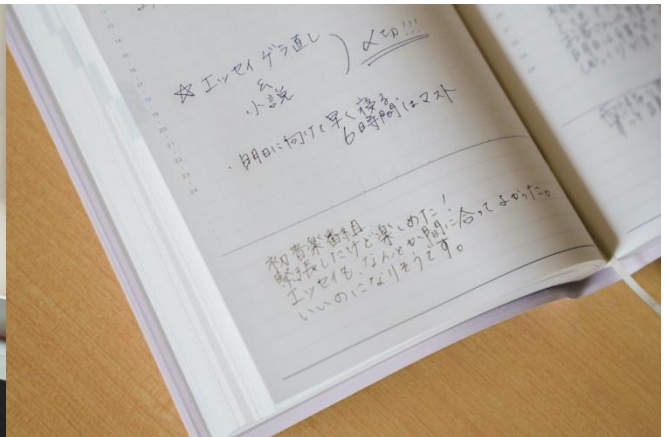 ☆エッセイゲラ直し
&
小説
〆切!!!
・明日に向けて早く寝る。
6時間はマスト
初音楽番組
緊張したけど楽しめた!
エッセイも、なんとか間に合ってよかった。
いいのになりそうです。